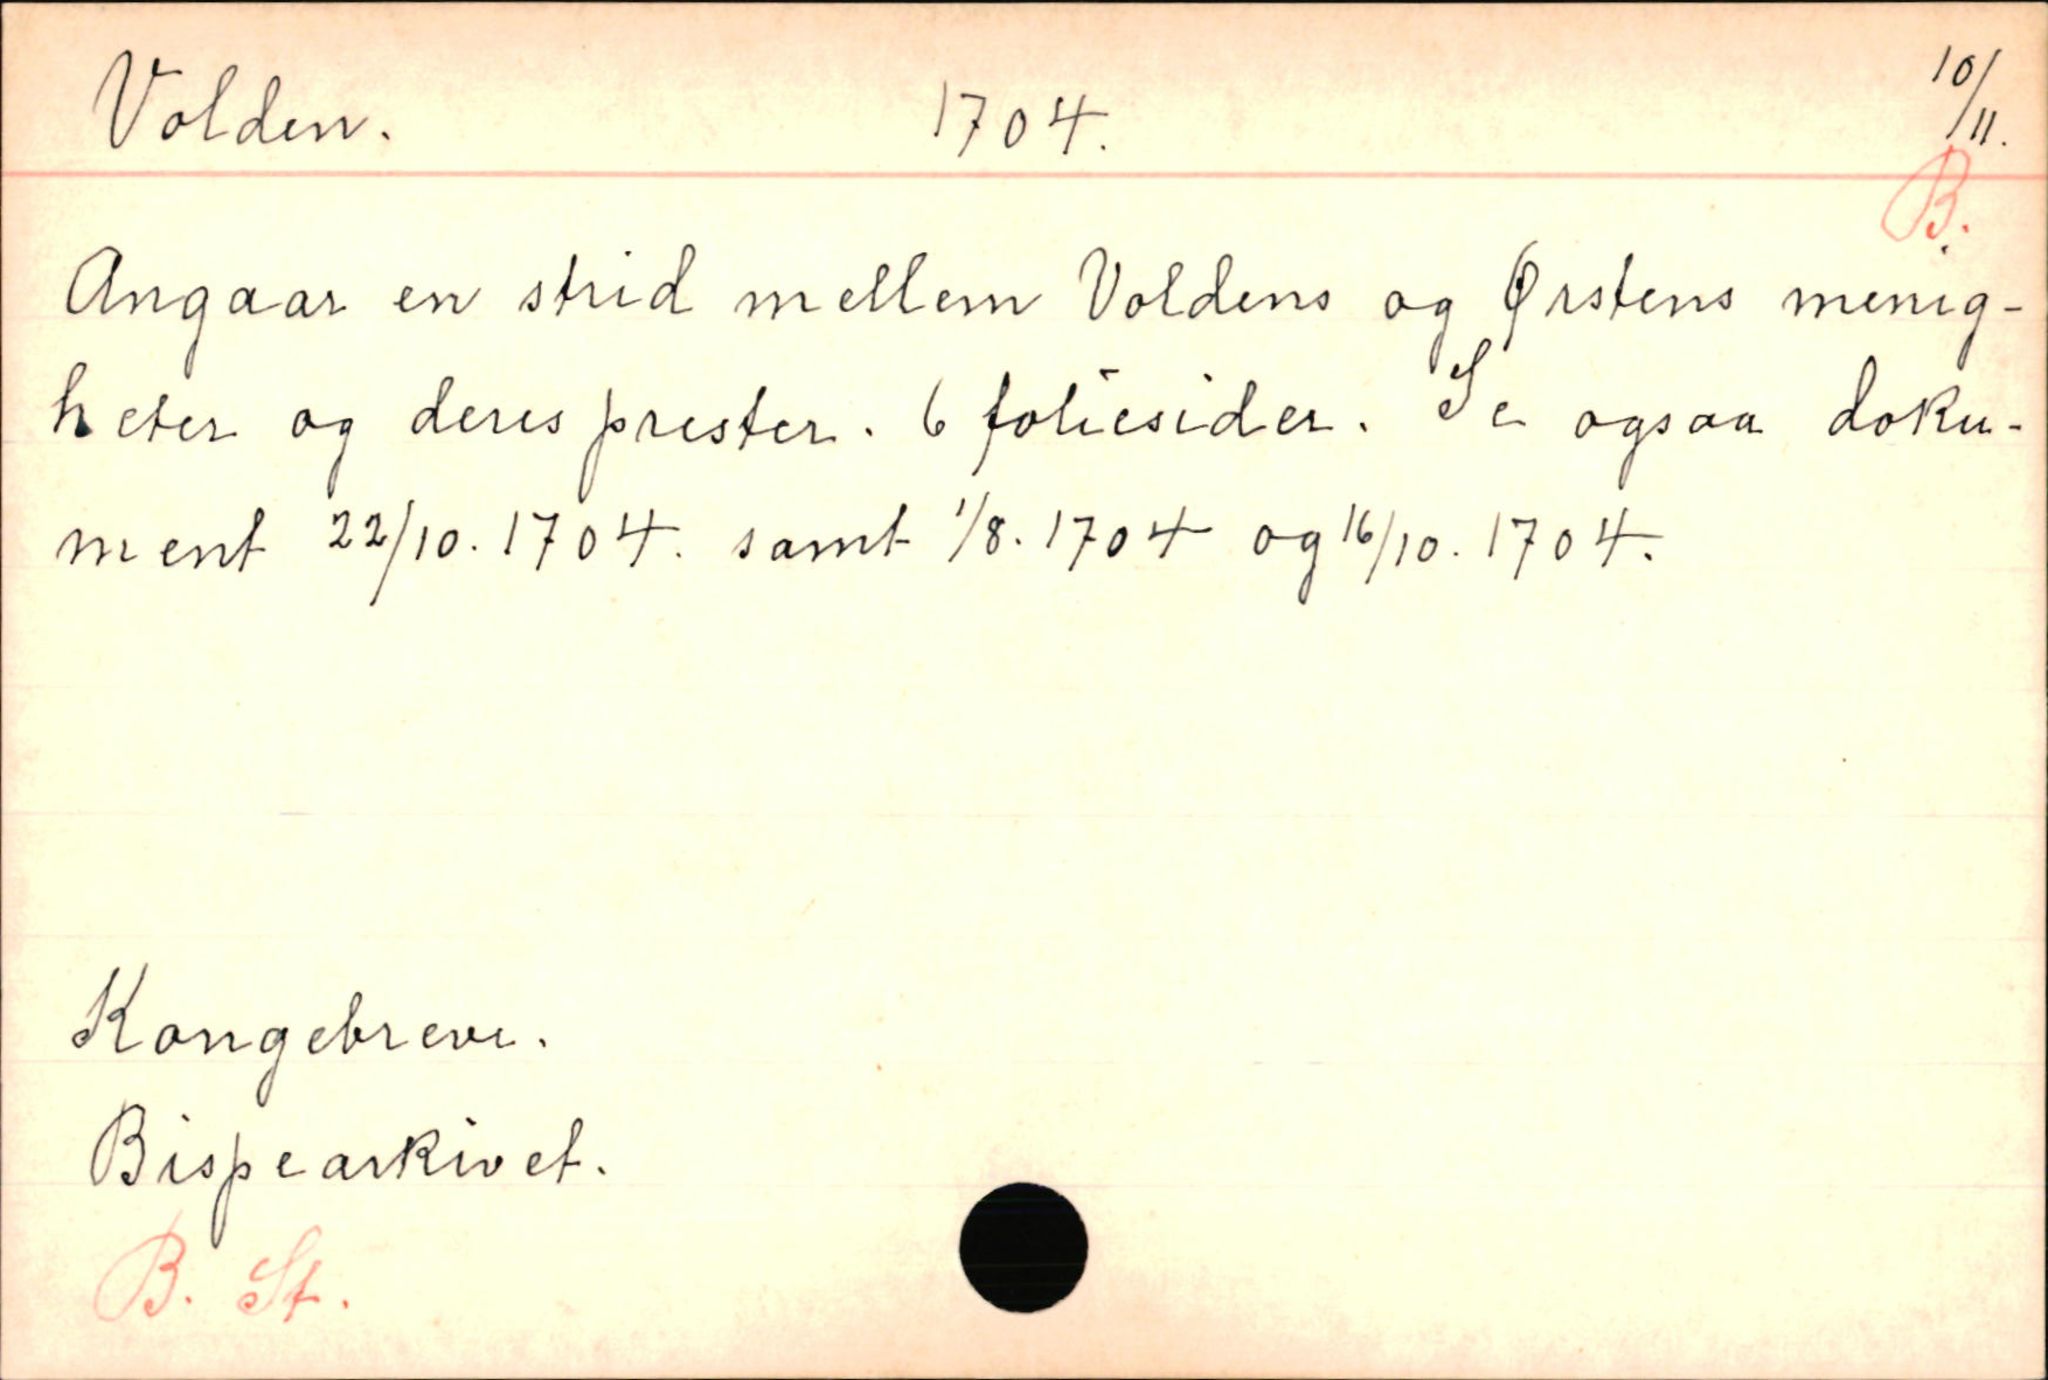 Volden. 1704. 10/11.
B.
Angaar en strid mellem Voldens og Ørstens menig-
heter og deres prester. 6 foliesider. Se ogsaa doku-
ment 22/10. 1704. samt 1/8. 1704 og 16/10. 1704.
Kongebreve.
Bispearkivet.
B. St.